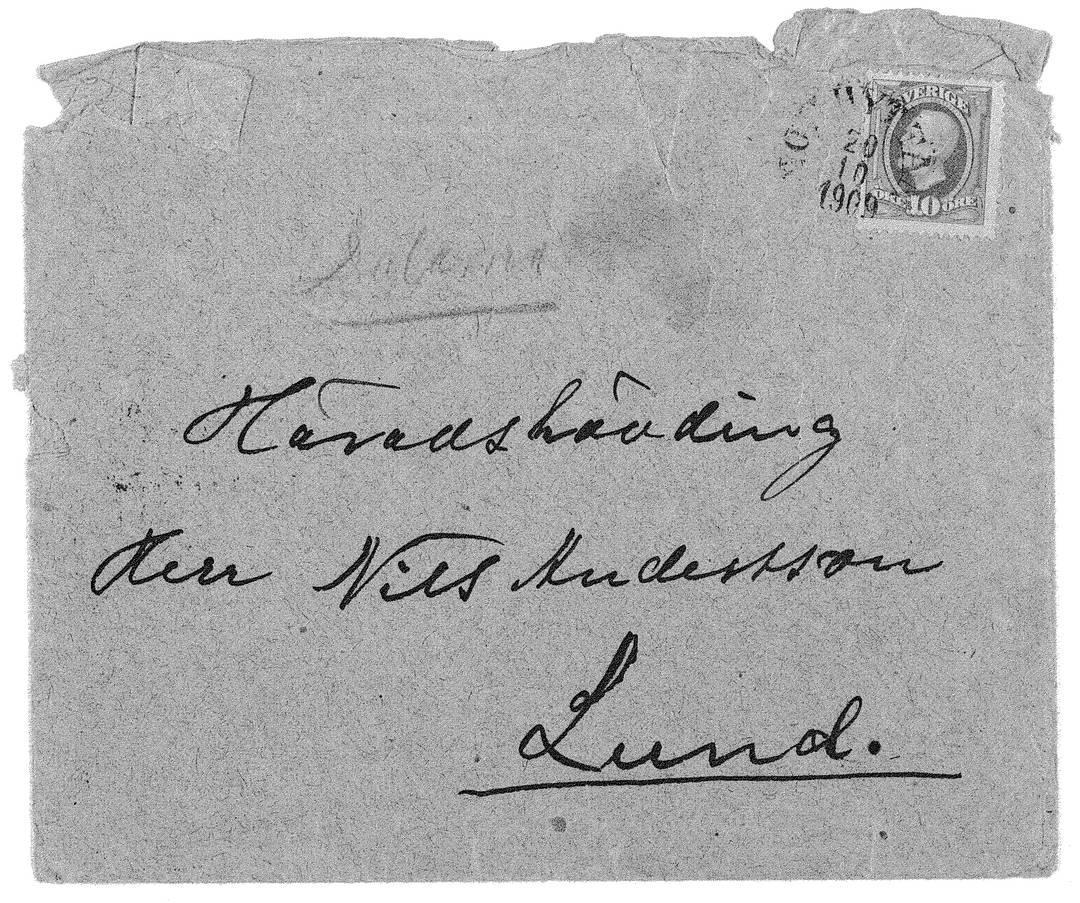 SVERIGE
20
10
1909
ÖRE 10 ÖRE
Häradshöfding
Herr Nils Andersson
Lund.